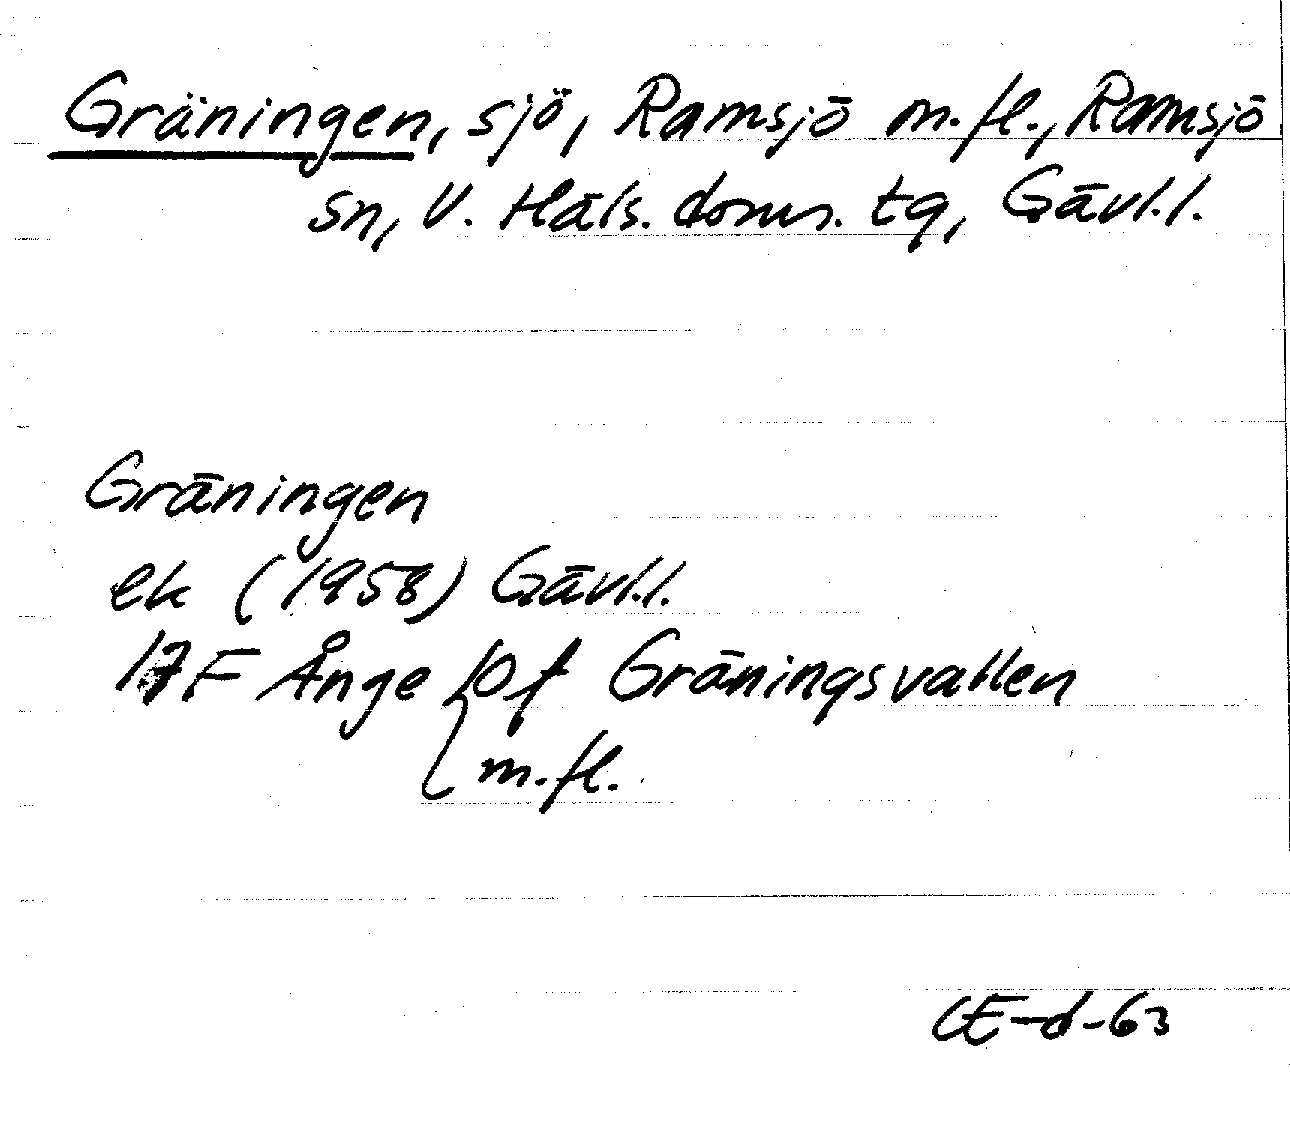 Gräningen, sjö, Ramsjö m.fl., Ramsjö
sn, V. Häls. doms. tg, Gävl.l.
Gräningen
ek (1958) Gävl.l.
17F Ånge 10f Gräningsvallen
m.fl.
CE-d-63